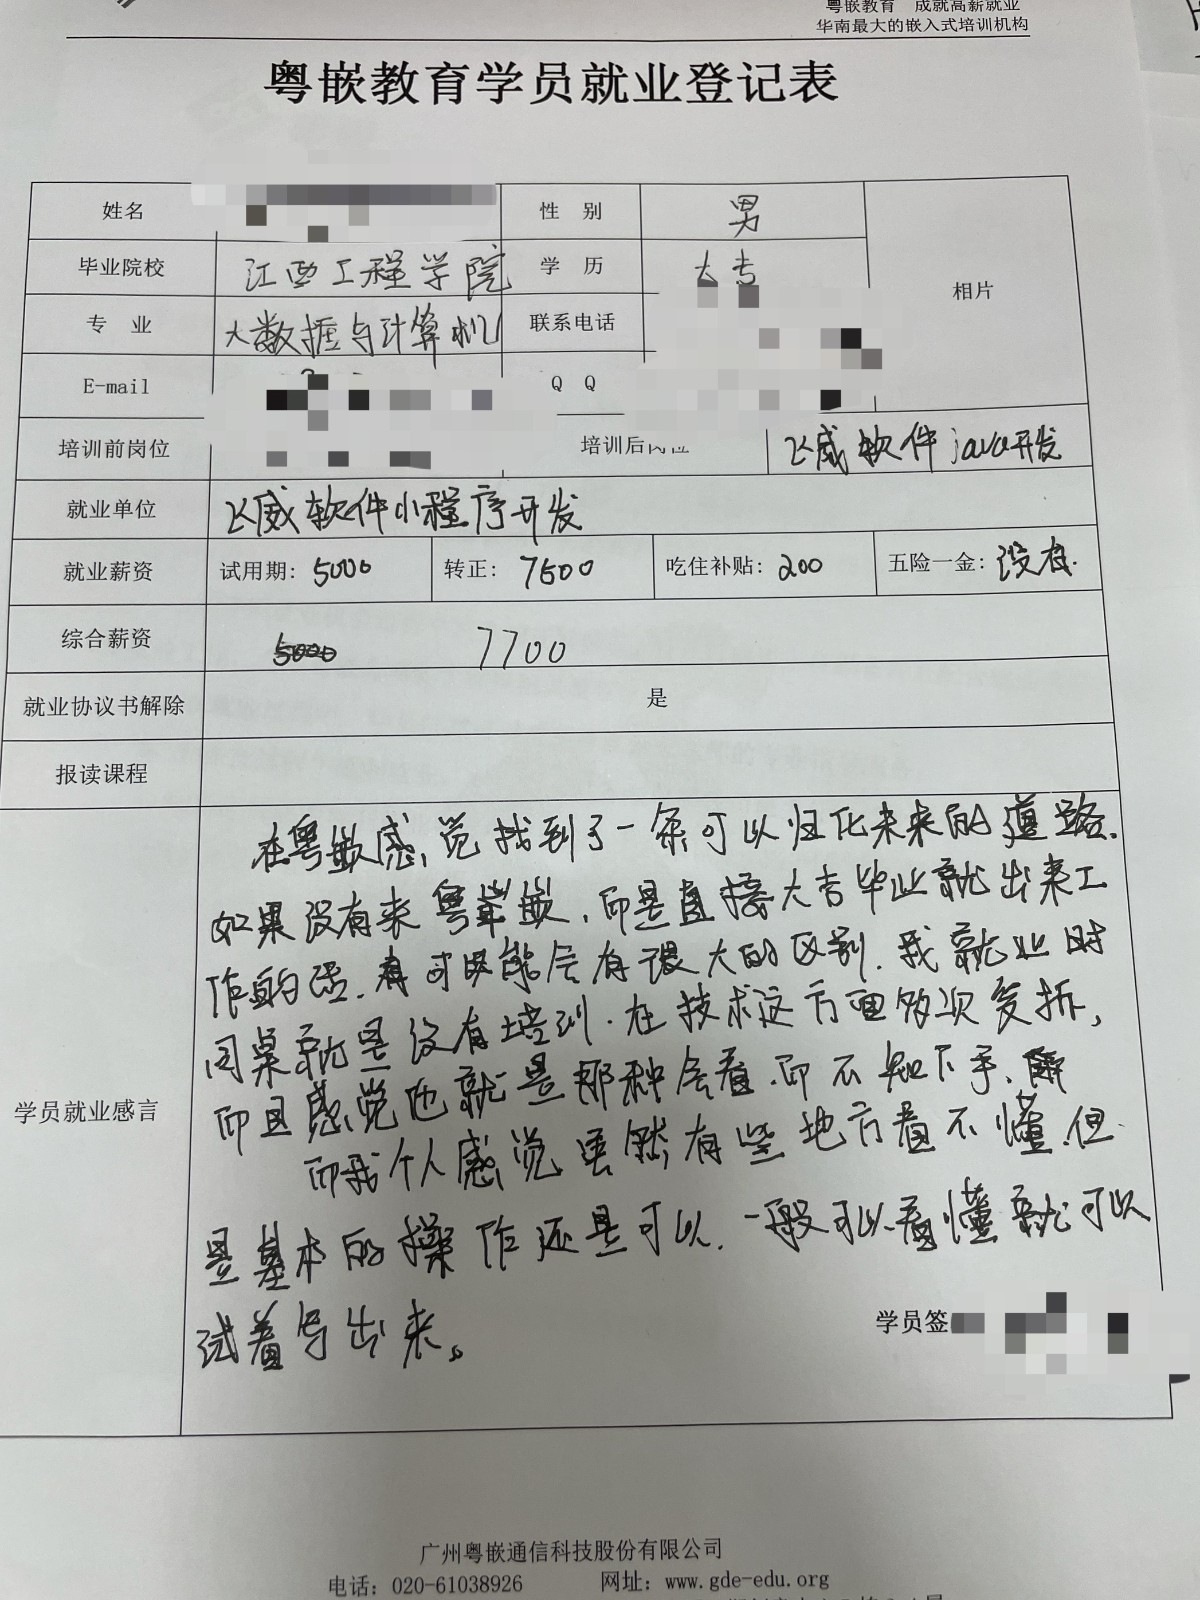 粤嵌教育 成就高薪就业
华南最大的嵌入式培训机构
粤嵌教育学员就业登记表
姓名 性 别 男 相片
毕业院校 江西工程学院 学 历 大专
专 业 大数据与计算机 联系电话
E-mail Q Q
培训前岗位 培训后岗位 飞威软件java开发
就业单位 飞威软件小程序开发
就业薪资 试用期: 5000 转正: 7500 吃住补贴: 200 五险一金: 没有.
综合薪资 5000 7700
就业协议书解除 是
报读课程
学员就业感言
在粤嵌感觉找到了一条可以归化未来的道路.
如果没有来粤嵌,而是直接大专毕业就出来工
作的话,有可能会有很大的区别.我就业时
同桌就是没有培训.在技术这方面多次复拆,
而且感觉他就是那种会看.而不知下手、
而我个人感觉虽然有些地方看不懂.但
是基本的操作还是可以.一般可以看懂就可以
试着写出来。
学员签
广州粤嵌通信科技股份有限公司
电话: 020-61038926 网址: www.gde-edu.org